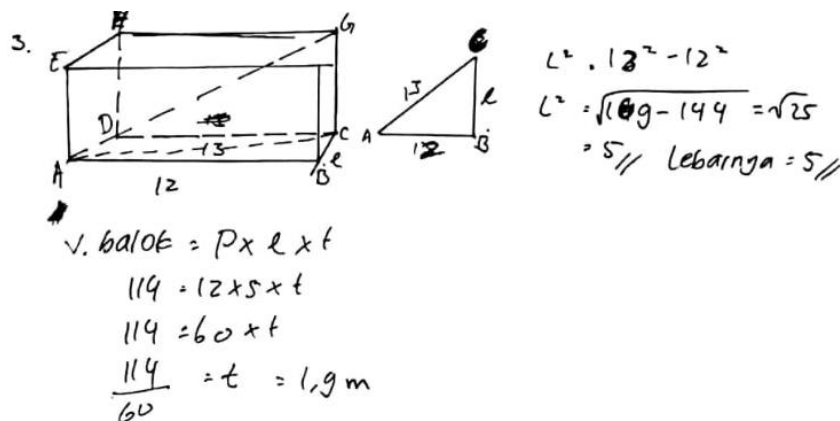 3.
H G
E
D C
13
A B l
12
C
13 l
A B
12
L² . 13² - 12²
L² = √169 - 144 = √25
= 5// Lebarnya = 5//
V. balok = P x l x t
114 = 12 x 5 x t
114 = 60 x t
114/60 = t = 1,9 m